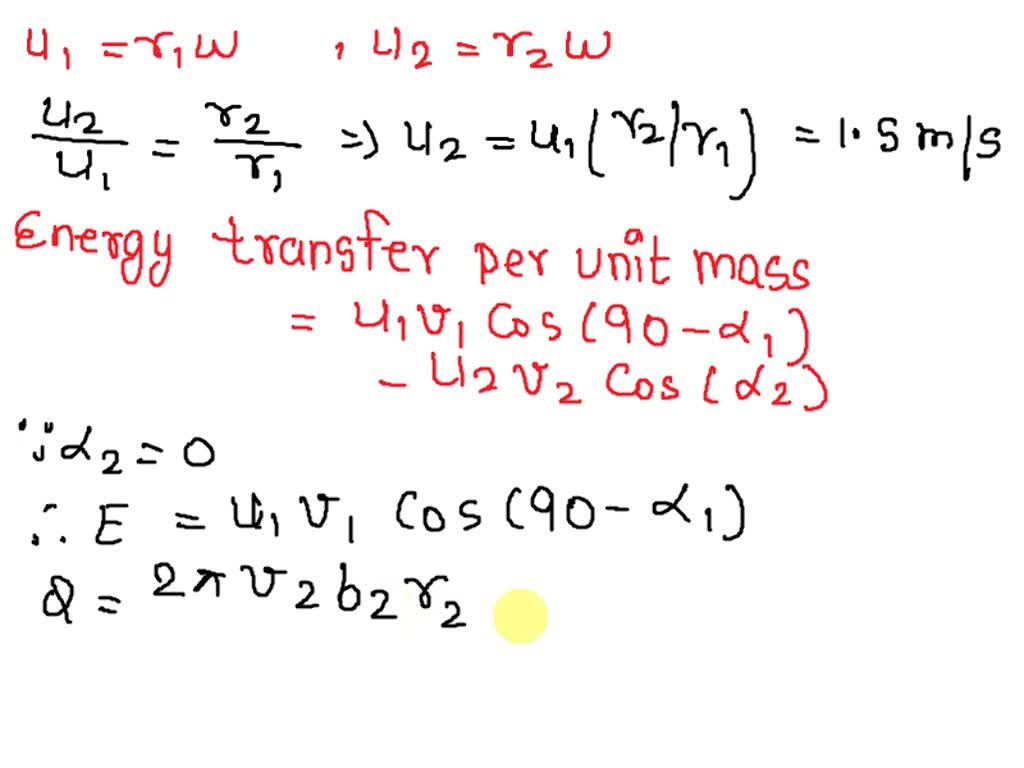 u₁ = r₁ω , u₂ = r₂ω
u₂/u₁ = r₂/r₁ => u₂ = u₁(r₂/r₁) = 1.5 m/s
Energy transfer per unit mass
= u₁v₁ cos(90-α₁)
- u₂v₂ cos(α₂)
∵ α₂ = 0
∴ E = u₁v₁ cos(90-α₁)
Q = 2πv₂b₂r₂